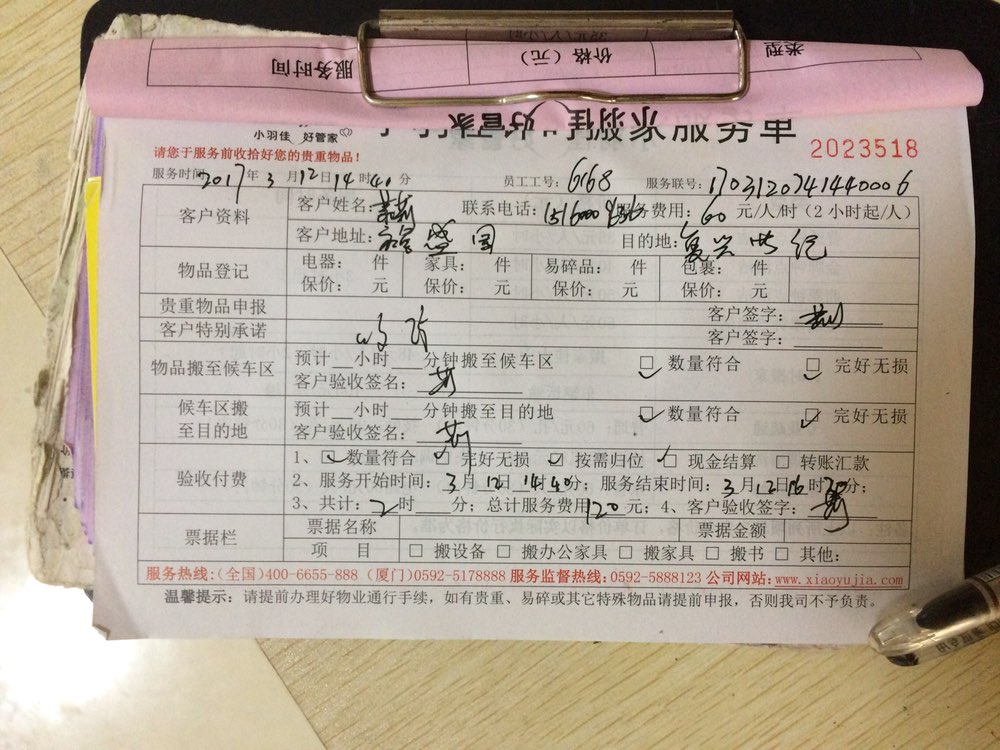 服务时间 价格（元） 类型
小羽佳 好管家
搬家服务单
请您于服务前收拾好您的贵重物品！
2023518
服务时间 2017年3月12日14时40分 员工工号：6168 服务联号：1703120741440006
客户资料 客户姓名： 联系电话： 服务费用：60元/人/时（2小时起/人）
客户地址： 目的地：复兴世纪
物品登记 电器： 件 家具： 件 易碎品： 件 包裹： 件
保价： 元 保价： 元 保价： 元 保价： 元
贵重物品申报 客户签字：
客户特别承诺 客户签字：
物品搬至候车区 预计__小时___分钟搬至候车区 □ 数量符合 □ 完好无损
客户验收签名：
候车区搬至目的地 预计__小时___分钟搬至目的地 □ 数量符合 □ 完好无损
客户验收签名：
验收付费 1、□ 数量符合 □ 完好无损 □ 按需归位 □ 现金结算 □ 转账汇款
2、服务开始时间：3月12日14时40分；服务结束时间：3月12日16时 分；
3、共计：2时 分；总计服务费用120元；4、客户验收签字：
票据栏 票据名称 票据金额
项 目 □ 搬设备 □ 搬办公家具 □ 搬家具 □ 搬书 □ 其他：
服务热线：(全国)400-6655-888 (厦门)0592-5178888 服务监督热线：0592-5888123 公司网站：www.xiaoyujia.com
温馨提示：请提前办理好物业通行手续，如有贵重、易碎或其它特殊物品请提前申报，否则我司不予负责。